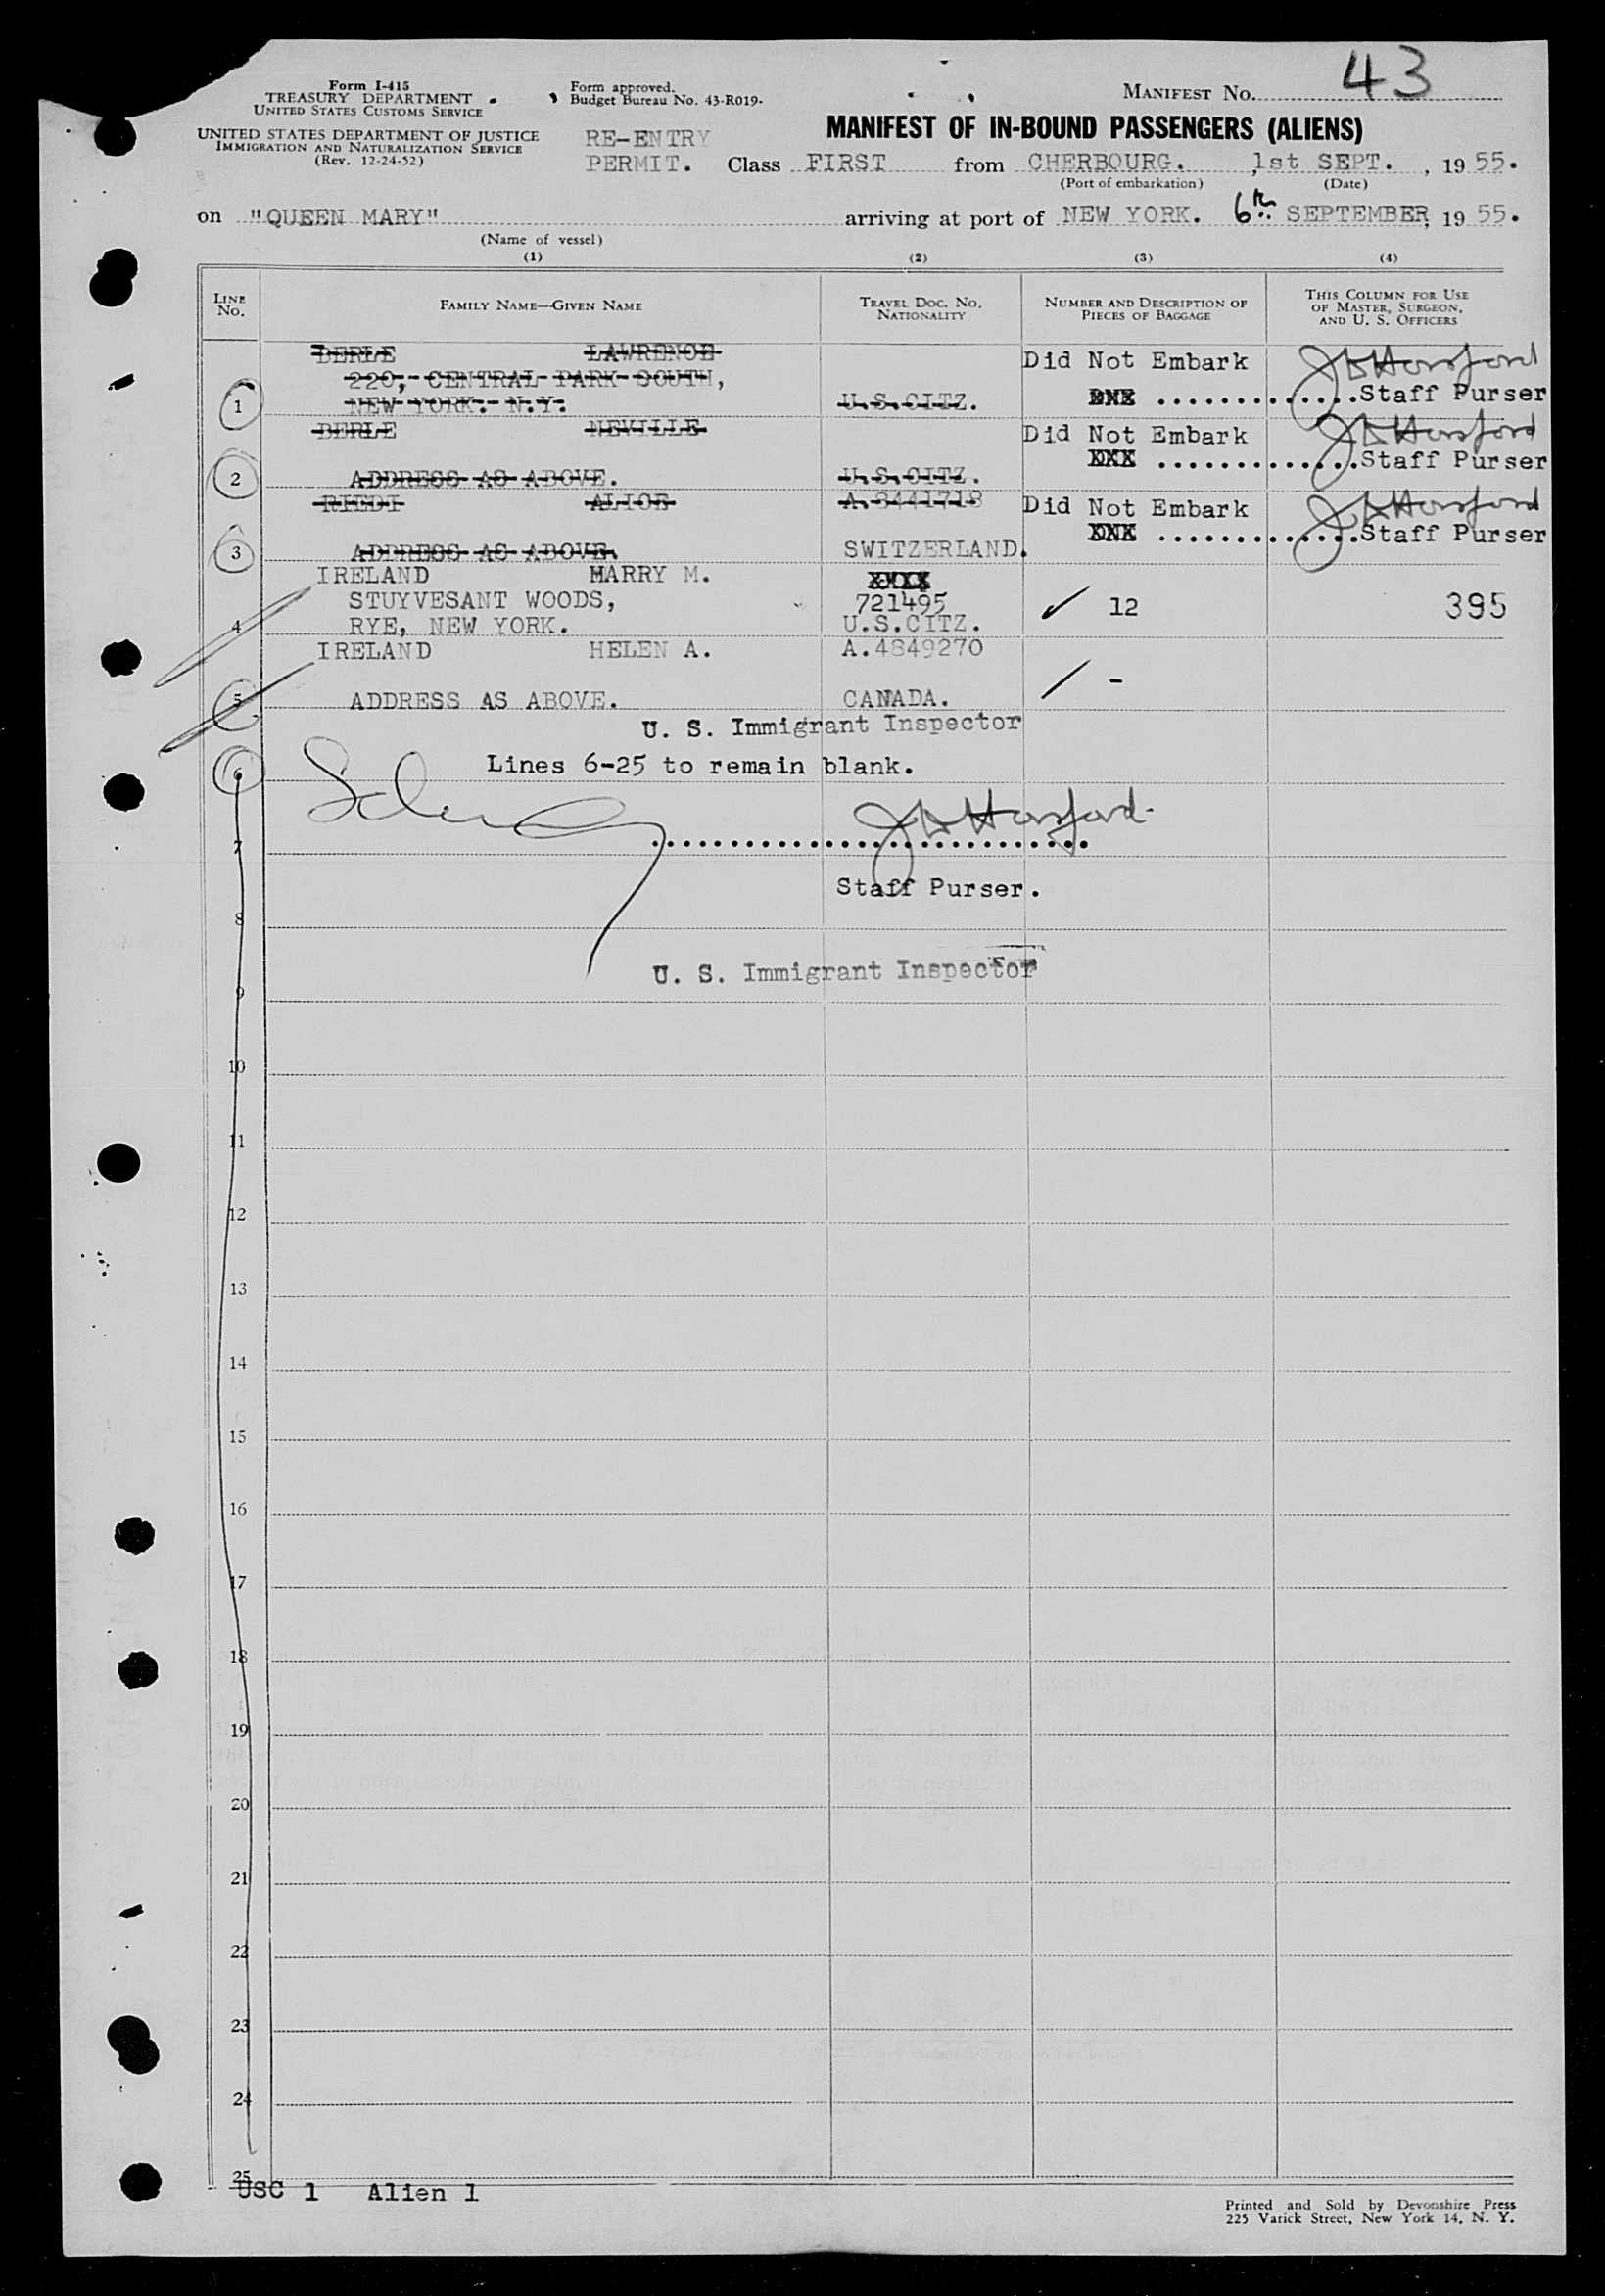 43
Form I-415
TREASURY DEPARTMENT
UNITED STATES CUSTOMS SERVICE
Form approved.
Budget Bureau No. 43-R019.
MANIFEST NO.
UNITED STATES DEPARTMENT OF JUSTICE
IMMIGRATION AND NATURALIZATION SERVICE
(Rev. 12-24-52)
RE-ENTRY
PERMIT.
MANIFEST OF IN-BOUND PASSENGERS (ALIENS)
Class FIRST from CHERBOURG. , 1st SEPT. , 19 55.
(Port of embarkation) (Date)
on "QUEEN MARY" arriving at port of NEW YORK. 6th SEPTEMBER, 19 55.
(Name of vessel)
(1) (2) (3) (4)
LINE NO.
FAMILY NAME—GIVEN NAME
TRAVEL DOC. NO. NATIONALITY
NUMBER AND DESCRIPTION OF PIECES OF BAGGAGE
THIS COLUMN FOR USE OF MASTER, SURGEON, AND U. S. OFFICERS
BERLE LAWRENCE Did Not Embark J D Horsford
220, CENTRAL PARK SOUTH,
1 NEW YORK. N.Y. U.S.CITZ. ..............Staff Purser
BERLE NEVILLE Did Not Embark J D Horsford
2 ADDRESS AS ABOVE. U.S.CITZ. ..............Staff Purser
RIEDI ALICE A.8441718 Did Not Embark J D Horsford
3 ADDRESS AS ABOVE. SWITZERLAND. ..............Staff Purser
IRELAND HARRY M.
STUYVESANT WOODS, 721495 ✓ 12 395
4 RYE, NEW YORK. U.S.CITZ.
IRELAND HELEN A. A.4849270
5 ADDRESS AS ABOVE. CANADA. -
U. S. Immigrant Inspector
6 Lines 6-25 to remain blank.
J D Horsford.
7
Staff Purser.
8
U. S. Immigrant Inspector
9
10
11
12
13
14
15
16
17
18
19
20
21
22
23
24
25
USC 1 Alien 1
Printed and Sold by Devonshire Press
225 Varick Street, New York 14, N. Y.